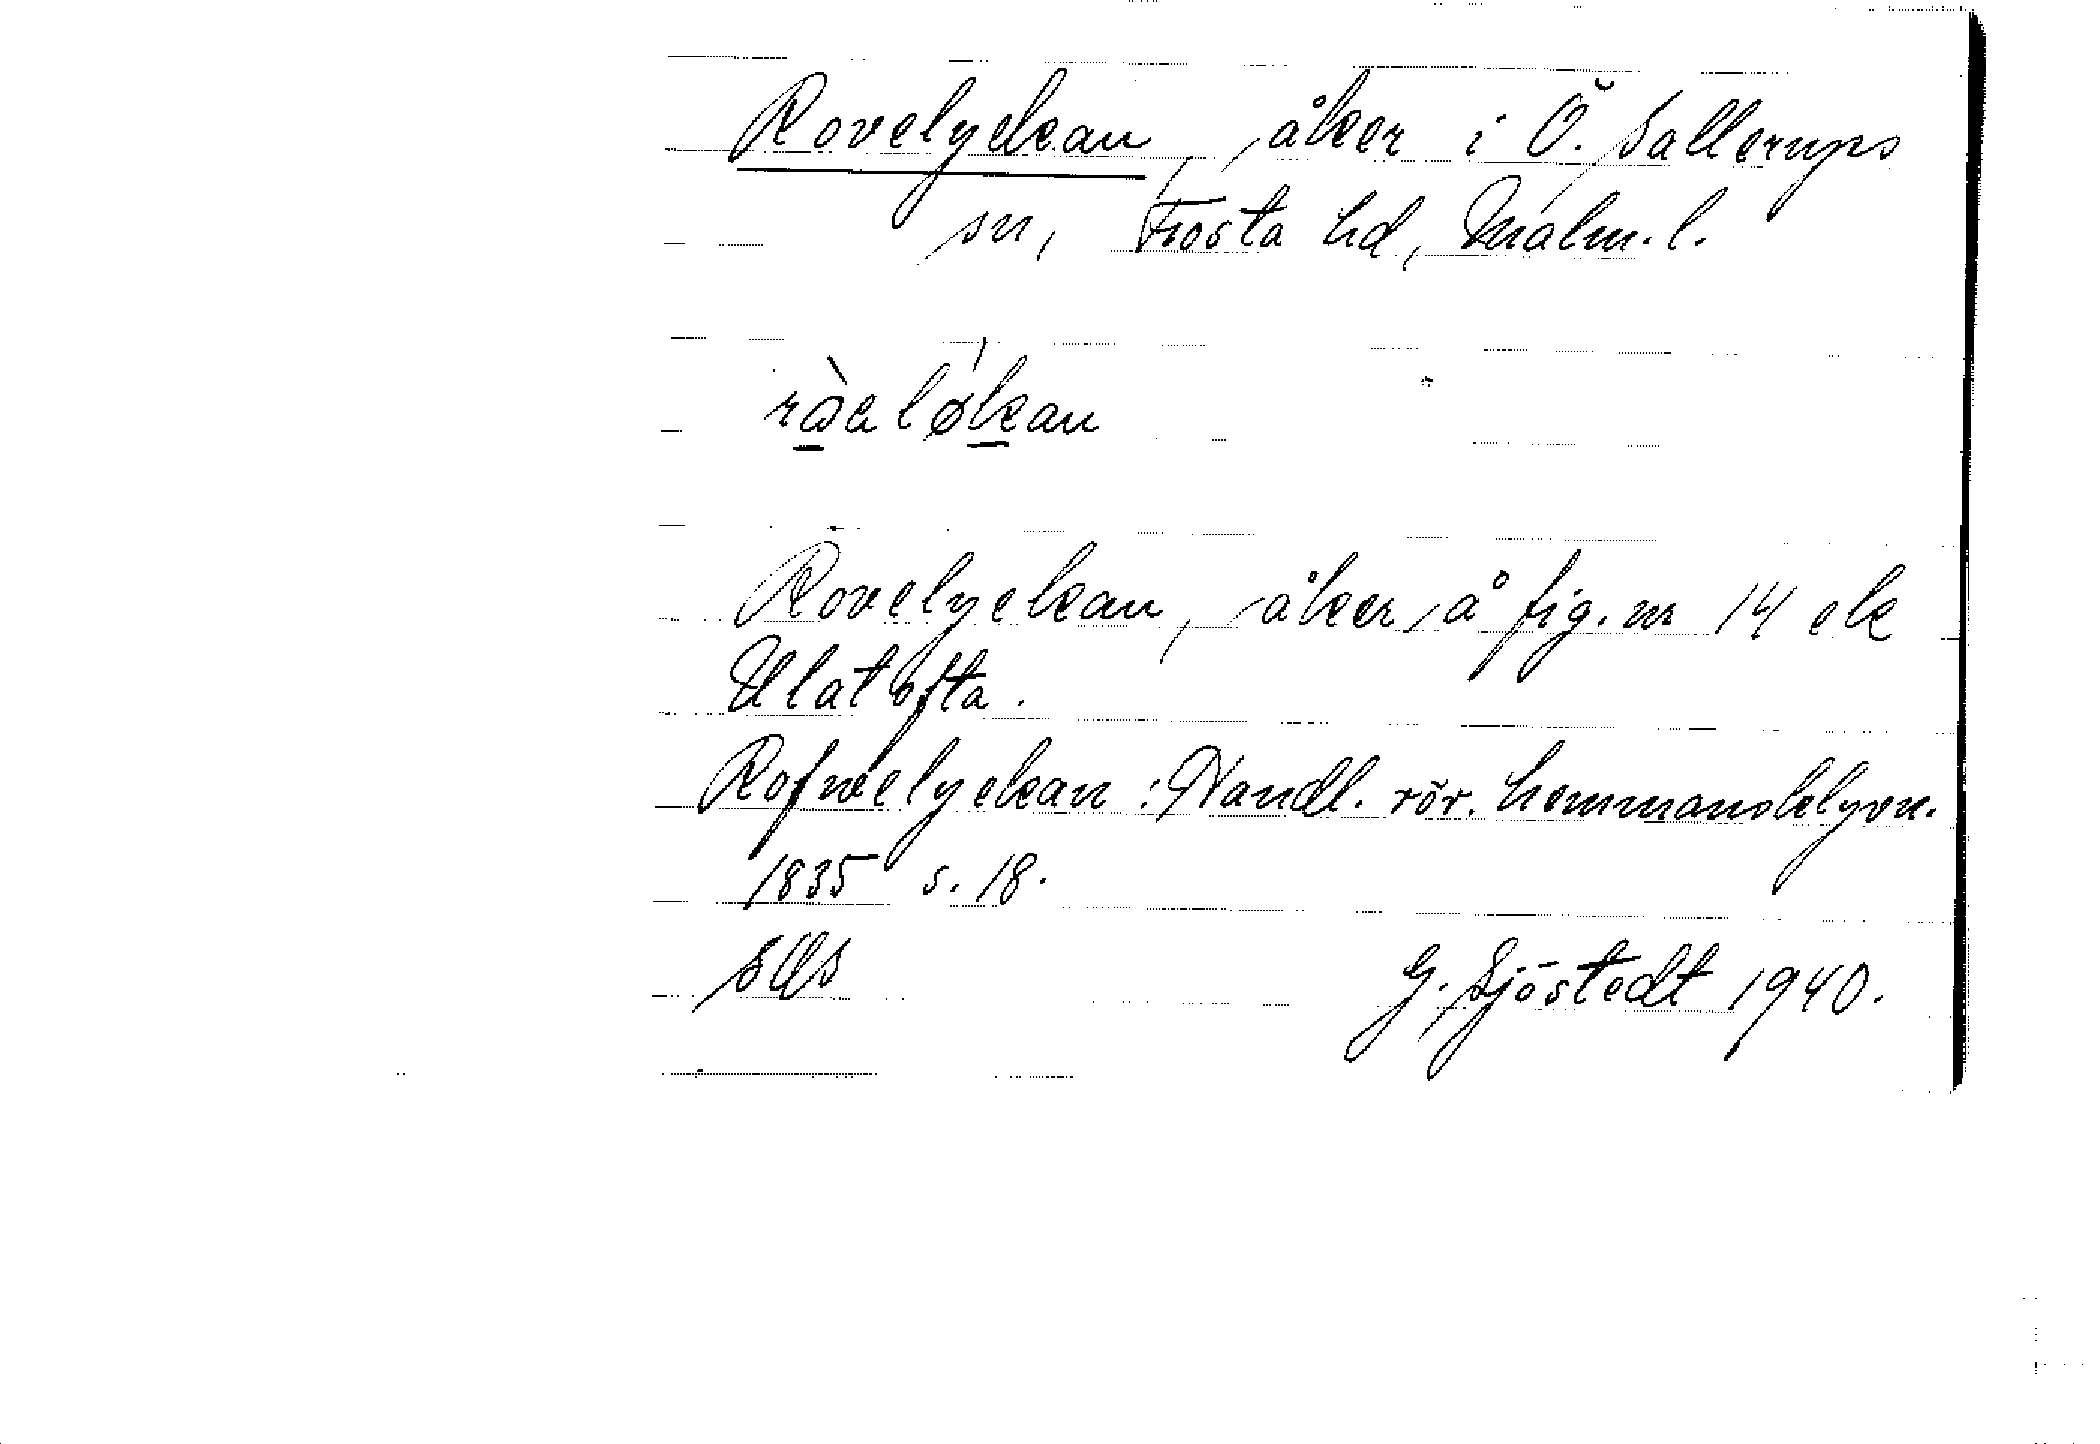 Rovelyckan, åker i Ö. Sallerups
sn, Frosta hd, Malm. l.
Rovelyckan, åker å fig. nr 14 ek
Ulatofta.
Rofwelyckan: Handl. rör. hemmansklyvn.
1835 s. 18.
G. Sjöstedt 1940.